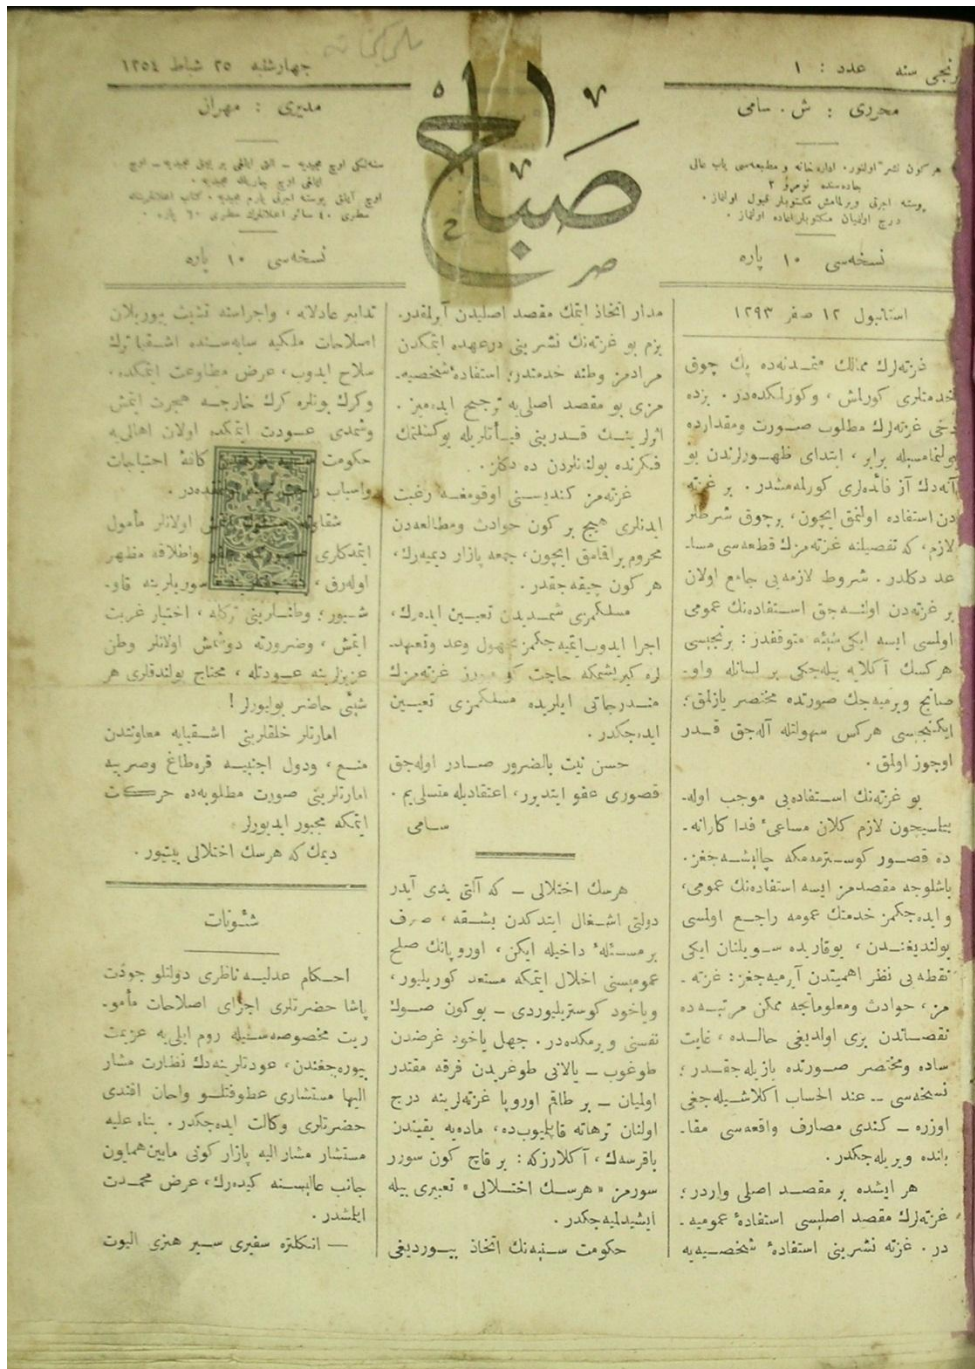 برنجی سنه عدد : ١
چهارشنبه ٢٥ شباط ١٢٥٤
صباح
محرری : ش . سامی
هر كون نشر اولنور . اداره خانه و مطبعه‌سی باب عالی
جاده‌سنده نومرو ٢
پوسته اجرتی ویرلمامش مكتوبلر قبول اولنماز .
درج اولنمیان مكتوبلر اعاده اولنماز .
نسخه‌سی ١٠ پاره
مدیری : مهران
نسخه‌سی ١٠ پاره
استانبول ١٢ صفر ١٢٩٣
غزته‌لرك ممالك متمـدنه‌ده پك چوق
خدمتلری كورلمش ، وكورلمكده‌در . بزده
دخی غزته‌لرك مطلوب صـورت ومقدارده
بولنمامسیله برابر ، ابتدای ظهـورلرندن بو
آنه‌دك آز فائده‌لری كورلمه‌مشدر . بر غزته
دن استفاده اولنمق ایچون ، برچوق شرطلر
لازم ، كه تفصیلنه غزته‌مزك قطعه‌سی مسا-
عد دكلدر . شروط لازمه‌یی جامع اولان
بر غزته‌دن اولنـه‌جق استـفاده‌نك عمومی
اولمسی ایسه ایكی شیئه متوقفدر : برنجیسی
هركسك آكلایه بیله‌جكی بر لسانله واو-
صانج ویرمیه‌جك صورتده مختصر یازلمق ؛
ایكنجیسی هركس سهولتله آله‌جق قـدر
اوجوز اولمق .
بو غزته‌نك استـفاده‌یی موجب اوله-
بیلمسیچون لازم كلان مساعیٔ فدا كارانه-
ده قصـور كوستـرمه‌مكه چالیشـه‌جغز .
باشلوجه مقصدمز ایسه استفاده‌نك عمومی ،
و ایده‌جكمز خدمتك عمومه راجع اولمسی
بولندیغنـدن ، یوقاریده سـویلنان ایكی
نقطه‌یی نظر اهمیتدن آیرمیه‌جغز : غزته-
مز ، حوادث ومعلوماتجه ممكن مرتبـه‌ده
نقصـاندن بری اولدیغی حالـده ، غایت
ساده ومختصر صـورتده یازیله‌جقـدر ؛
نسخه‌سی — عند الحساب آكلاشیله‌جغی
اوزره — كندی مصارف واقعه‌سی مقا-
بلنده ویریله‌جكدر .
هر ایشده بر مقصـد اصلی واردر ؛
غزته‌لرك مقصد اصلیسی استفادهٔ عمومیه-
در . غزته نشرینی استفادهٔ شخصـیه‌یه
مدار اتخاذ ایتمك مقصد اصلیدن آیرلمقدر .
بزم بو غزته‌نك نشرینی درعهده ایتمكدن
مرادمز وطنه خدمتدر ؛ استفادهٔ شخصیه-
مزی بو مقصد اصلی‌یه ترجیح ایده‌میز .
اثرلرینـك قـدرینی فیـأتلریله یوكسلتمك
فكرنده بولنانلردن ده دكلز .
غزته‌مز كندیسـنی اوقومغـه رغبت
ایدنلری هیچ بر كون حوادث ومطالعه‌دن
محروم براقمامق ایچون ، جمعه پازار دیمیه‌رك ،
هر كون چیقه‌جقدر .
مسلكمزی شمـدیدن تعیـین ایده‌رك ،
اجرا ایدوب ایتمیه‌جكمز مجهول وعد وتعهد-
لره كیریشمكه حاجت كورمیز . غزته‌مزك
منـدرجاتی ایلریده مسلكمزی تعیـین
ایده‌جكدر .
حسن نیت بالضرور صـادر اوله‌جق
قصوری عفو ایتدیرر ، اعتقادیله متسلی‌یم .
سـامی
هرسك اختلالی — كه آلتی یدی آیدر
دولتی اشـغال ایتدكدن بشـقه ، صرف
بر مسـئلهٔ داخلیه ایكن ، اوروپانك صلح
عمومیسنی اخلال ایتمكه مستعد كوریلیور ،
ویاخود كوستریلیوردی — بو كون صـوك
نفسنی ویرمكده‌در . جهل یاخود غرضدن
طوغوب — یالانی طوغریدن فرقه مقتدر
اولمیان — بر طاقم اوروپا غزته‌لرینه درج
اولنان ترهاته قاپلیوب‌ده ، ماده‌یه یقیندن
باقرسه‌ك ، آكلارزكه : بر قاچ كون سورر
سورمز « هرسـك اختـلالی » تعبیری بیله
ایشیدلمیه‌جكدر .
حكومت سـنیه‌نك اتخاذ بیـوردیغی
تدابیر عادلانه ، واجراسنه تشبث بیوریلان
اصلاحات ملكیه سایه‌سـنده اشـقیانك
سلاح ایدوب ، عرض مطاوعت ایتمكده ،
وكرك بونلره كرك خارجـه هجرت ایتمش
وشمدی عـودت ایتمكده اولان اهالی‌یه
حكومت كافهٔ احتیاجات
واسباب
ایتدكلری واطلاقه مظهر
اوله‌رق ،
شـیور ؛ وطنـلرینی تركله ، اختیار غربت
ایتمش ، وضرورته دوشمش اولانلر وطن
عزیزلرینه عـودتله ، محتاج بولندقلری هر
شیئی حاضر بولیورلر !
امارتلر خلقلرینی اشـقیایه معاونتدن
منـع ، ودول اجنبیـه قره‌طاغ وصربیه
امارتلرینی صورت مطلوبه‌ده حركت
ایتمكه مجبور ایدیورلر
دیمك كه هرسك اختلالی بیتیور .
شئونات
احـكام عدلیـه ناظری دولتلو جودت
پاشا حضرتلری اجرای اصلاحات مأمو-
ریت مخصوصه‌سـیله روم ایلی‌یه عزیمت
بیوره‌جغندن ، عودتلرینه‌دك نظارت مشار
الیها مستشاری عطوفتلـو واهان افندی
حضرتلری وكالت ایده‌جكدر . بناء علیه
مستشار مشار الیه پازار كونی مابین همایون
جانب عالیسـنه كیده‌رك ، عرض محمـدت
ایلمشدر .
— انكلتره سفیری سـیر هنری الیوت